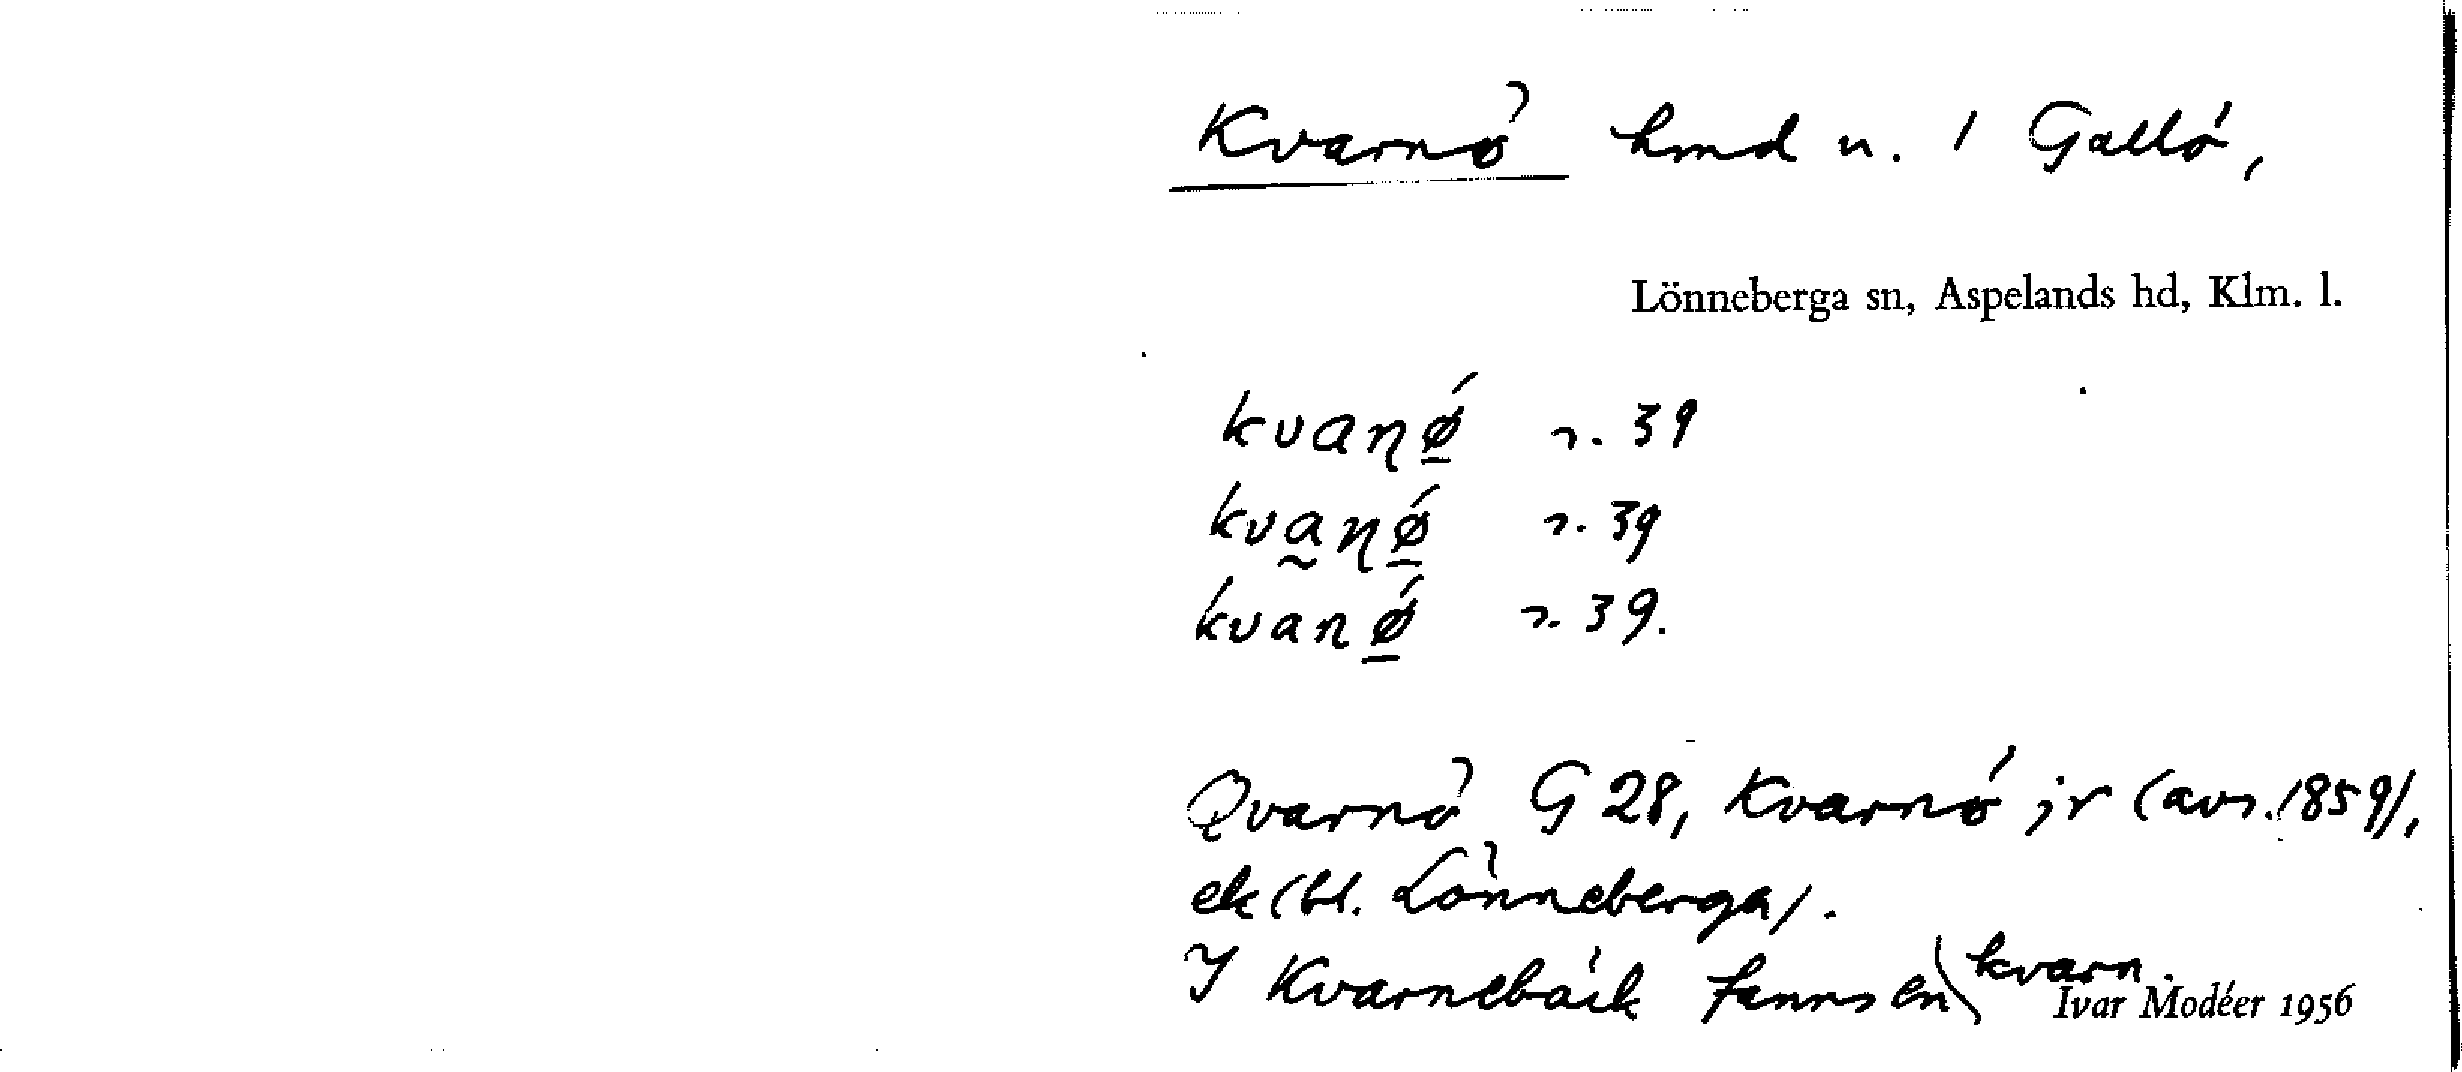 Kvarnö hmd u. 1 Gallö,
Lönneberga sn, Aspelands hd, Klm. l.
kvaɳǿ n. 39
kva̰ɳǿ n. 39
kvanǿ n. 39.
Qvarnö G 28, Kvarnö jr (avs. 1859),
ek (bl. Lönneberga).
I Kvarnebäck fanns en kvarn.
Ivar Modéer 1956